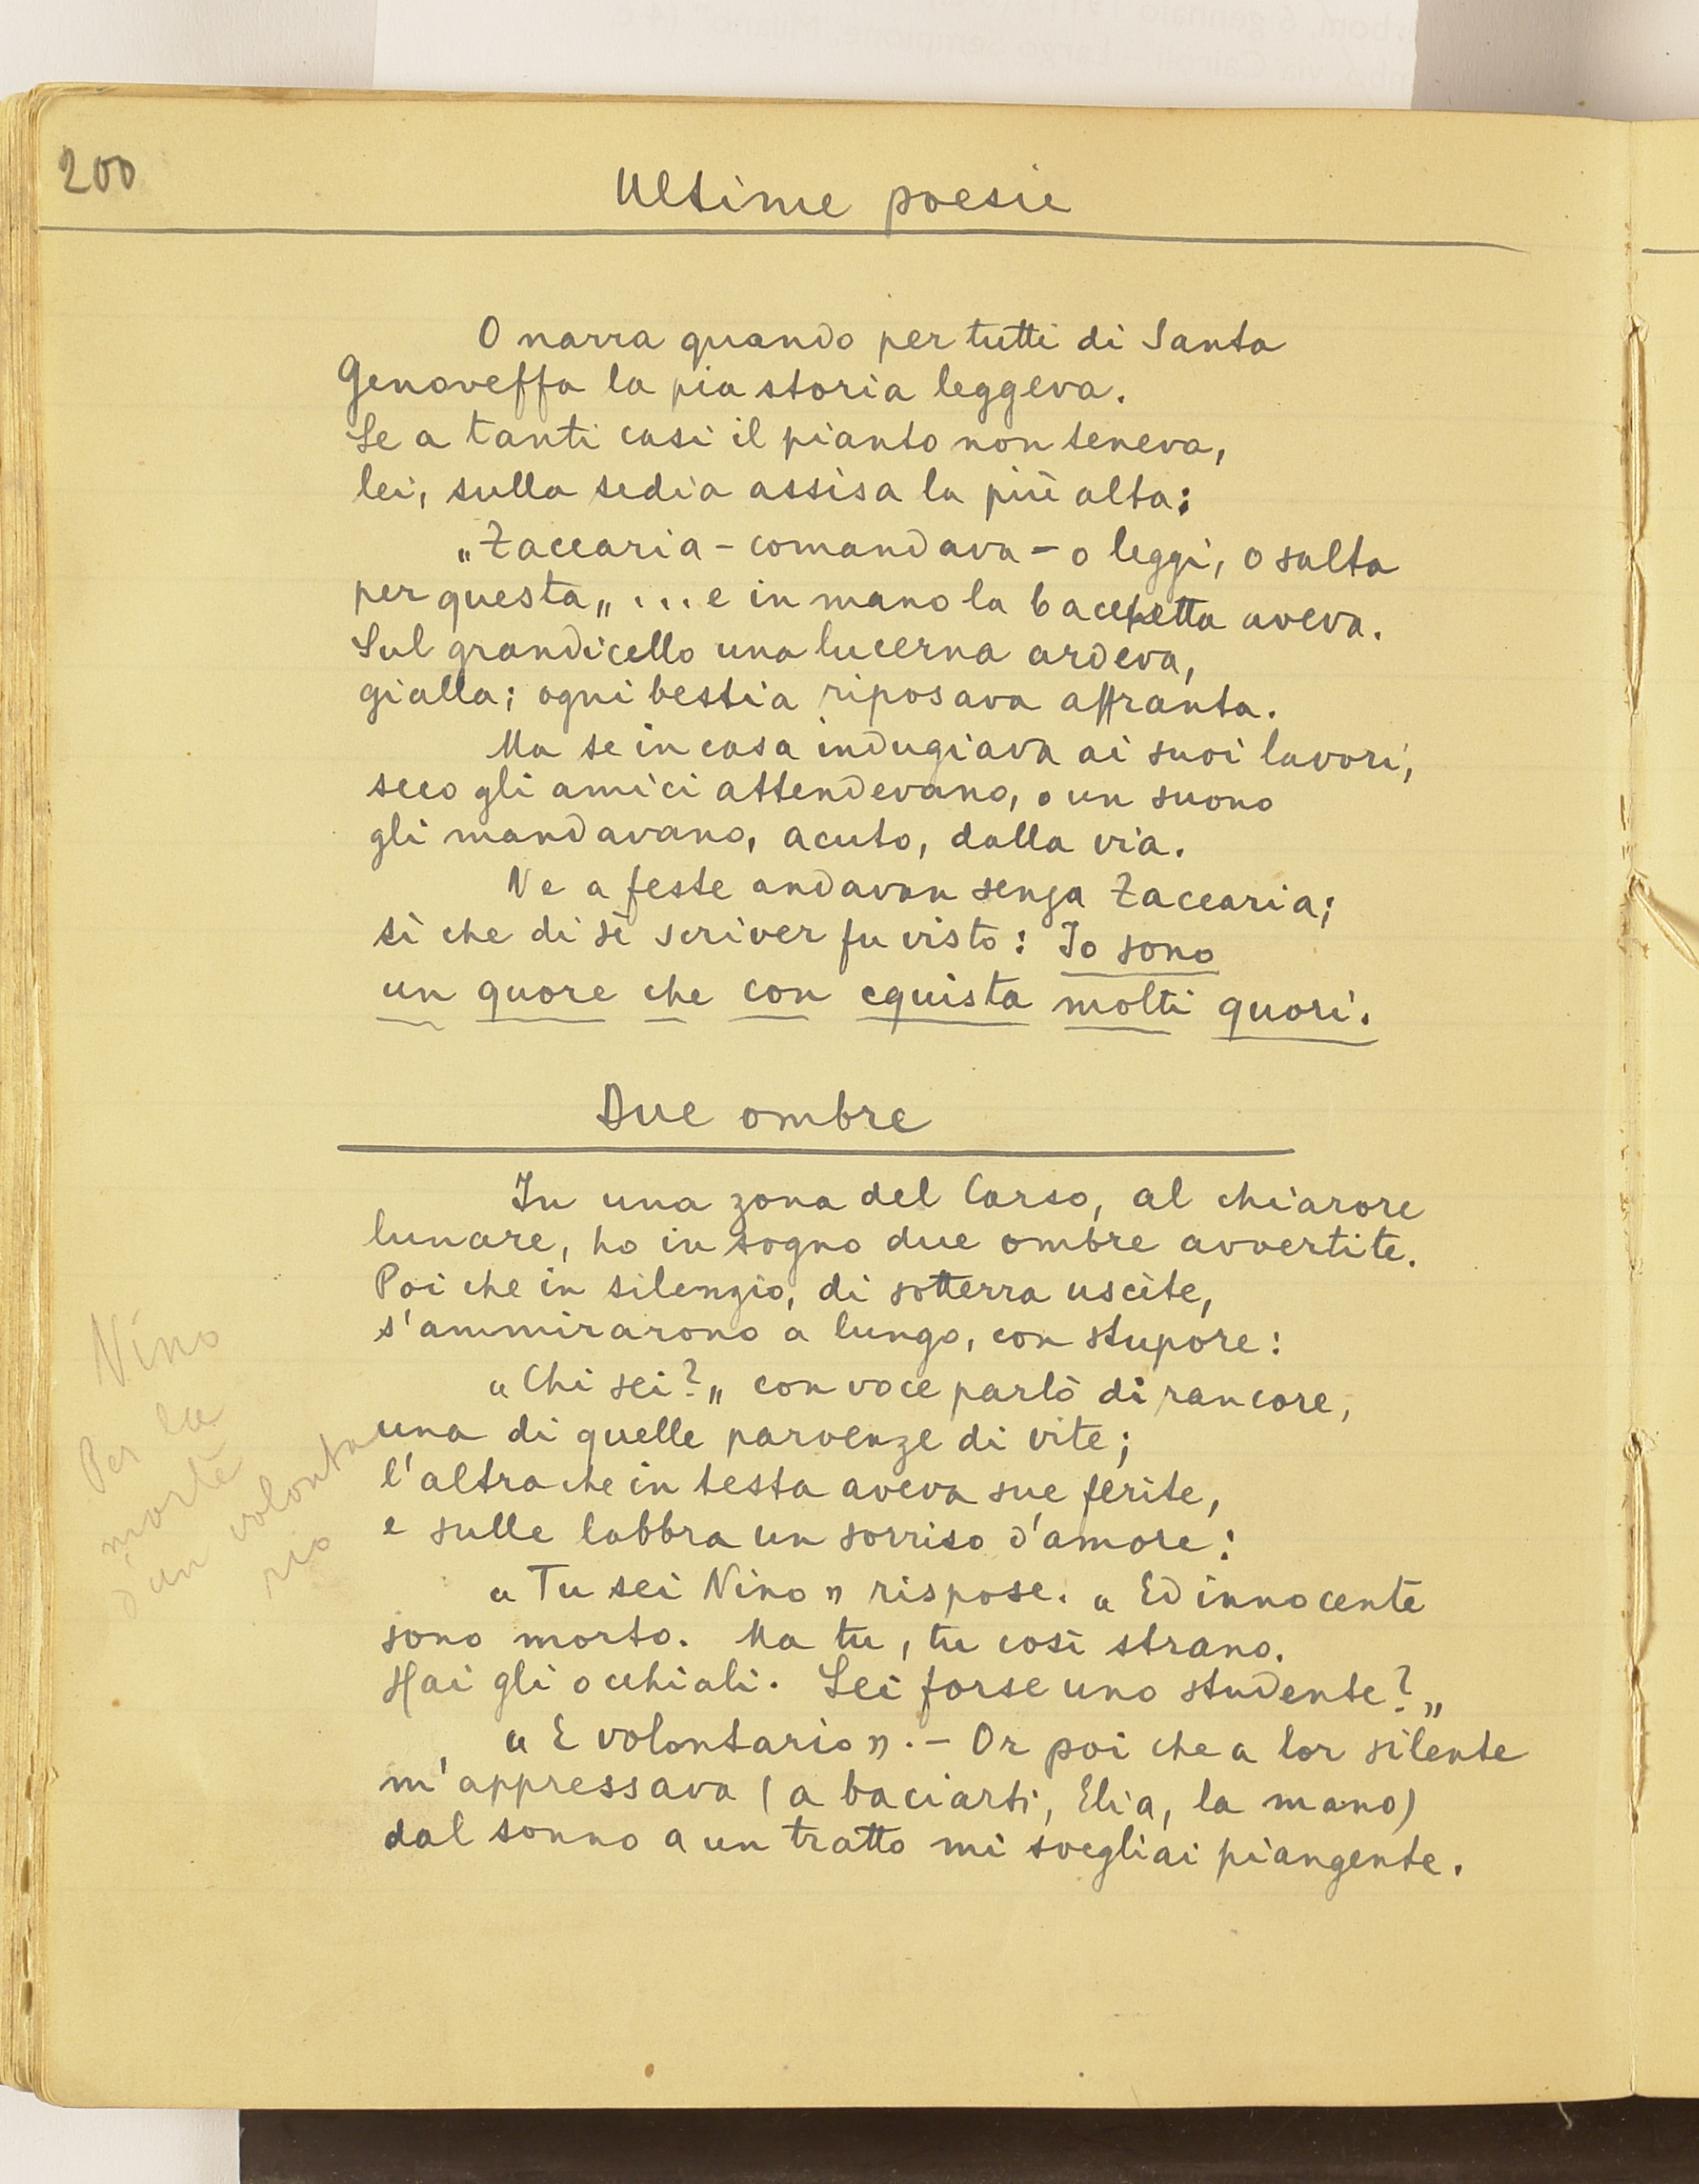 200
Ultime poesie
O narra quando per tutti di Santa
Genoveffa la pia storia leggeva.
Se a tanti casi il pianto non teneva,
lei, sulla sedia assisa la più alta:
„Zaccaria - comandava - o leggi, o salta
per questa„ ... e in mano la bacchetta aveva.
Sul grandicello una lucerna ardeva,
gialla; ogni bestia riposava affranta.
Ma se in casa indugiava ai suoi lavori,
seco gli amici attendevano, o un suono
gli mandavano, acuto, dalla via.
Ne a feste andavan senza Zaccaria;
sì che di sè scriver fu visto: Io sono
un quore che con cquista molti quori.
Due ombre
In una zona del Carso, al chiarore
lunare, ho in sogno due ombre avvertite.
Poi che in silenzio, di sotterra uscite,
s'ammirarono a lungo, con stupore:
„Chi sei?„ con voce parlò di rancore,
una di quelle parvenze di vite;
l'altra che in testa aveva sue ferite,
e sulle labbra un sorriso d'amore:
„Tu sei Nino„ rispose. „Ed innocente
sono morto. Ma tu, tu così strano.
Hai gli occhiali. Sei forse uno studente?„
„E volontario„. - Or poi che a lor silente
m'appressava (a baciarti, Elia, la mano)
dal sonno a un tratto mi svegliai piangente.
Nino
Per la
morte
d'un volonta
rio